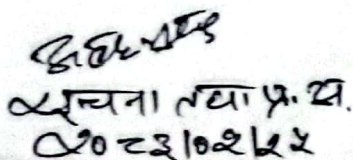 सूचना तथा प्र. अ.
२०८३।०२।२५